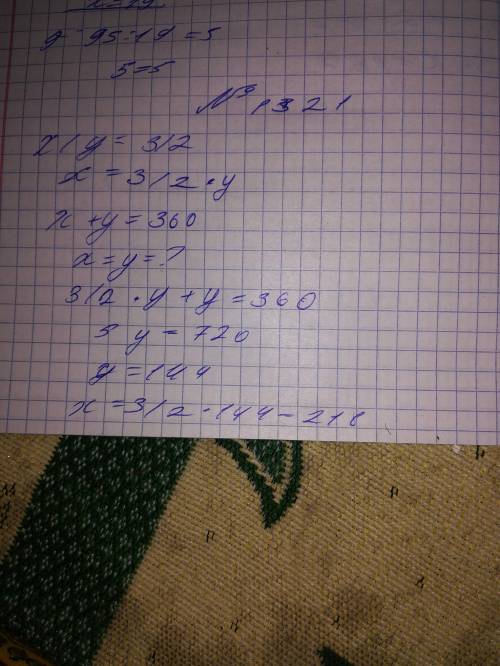 9 95:19=5
5=5
№ 1321
x/y=3/2
x=3/2·y
x+y=360
x=y=?
3/2·y+y=360
5y=720
y=144
x=3/2·144=216